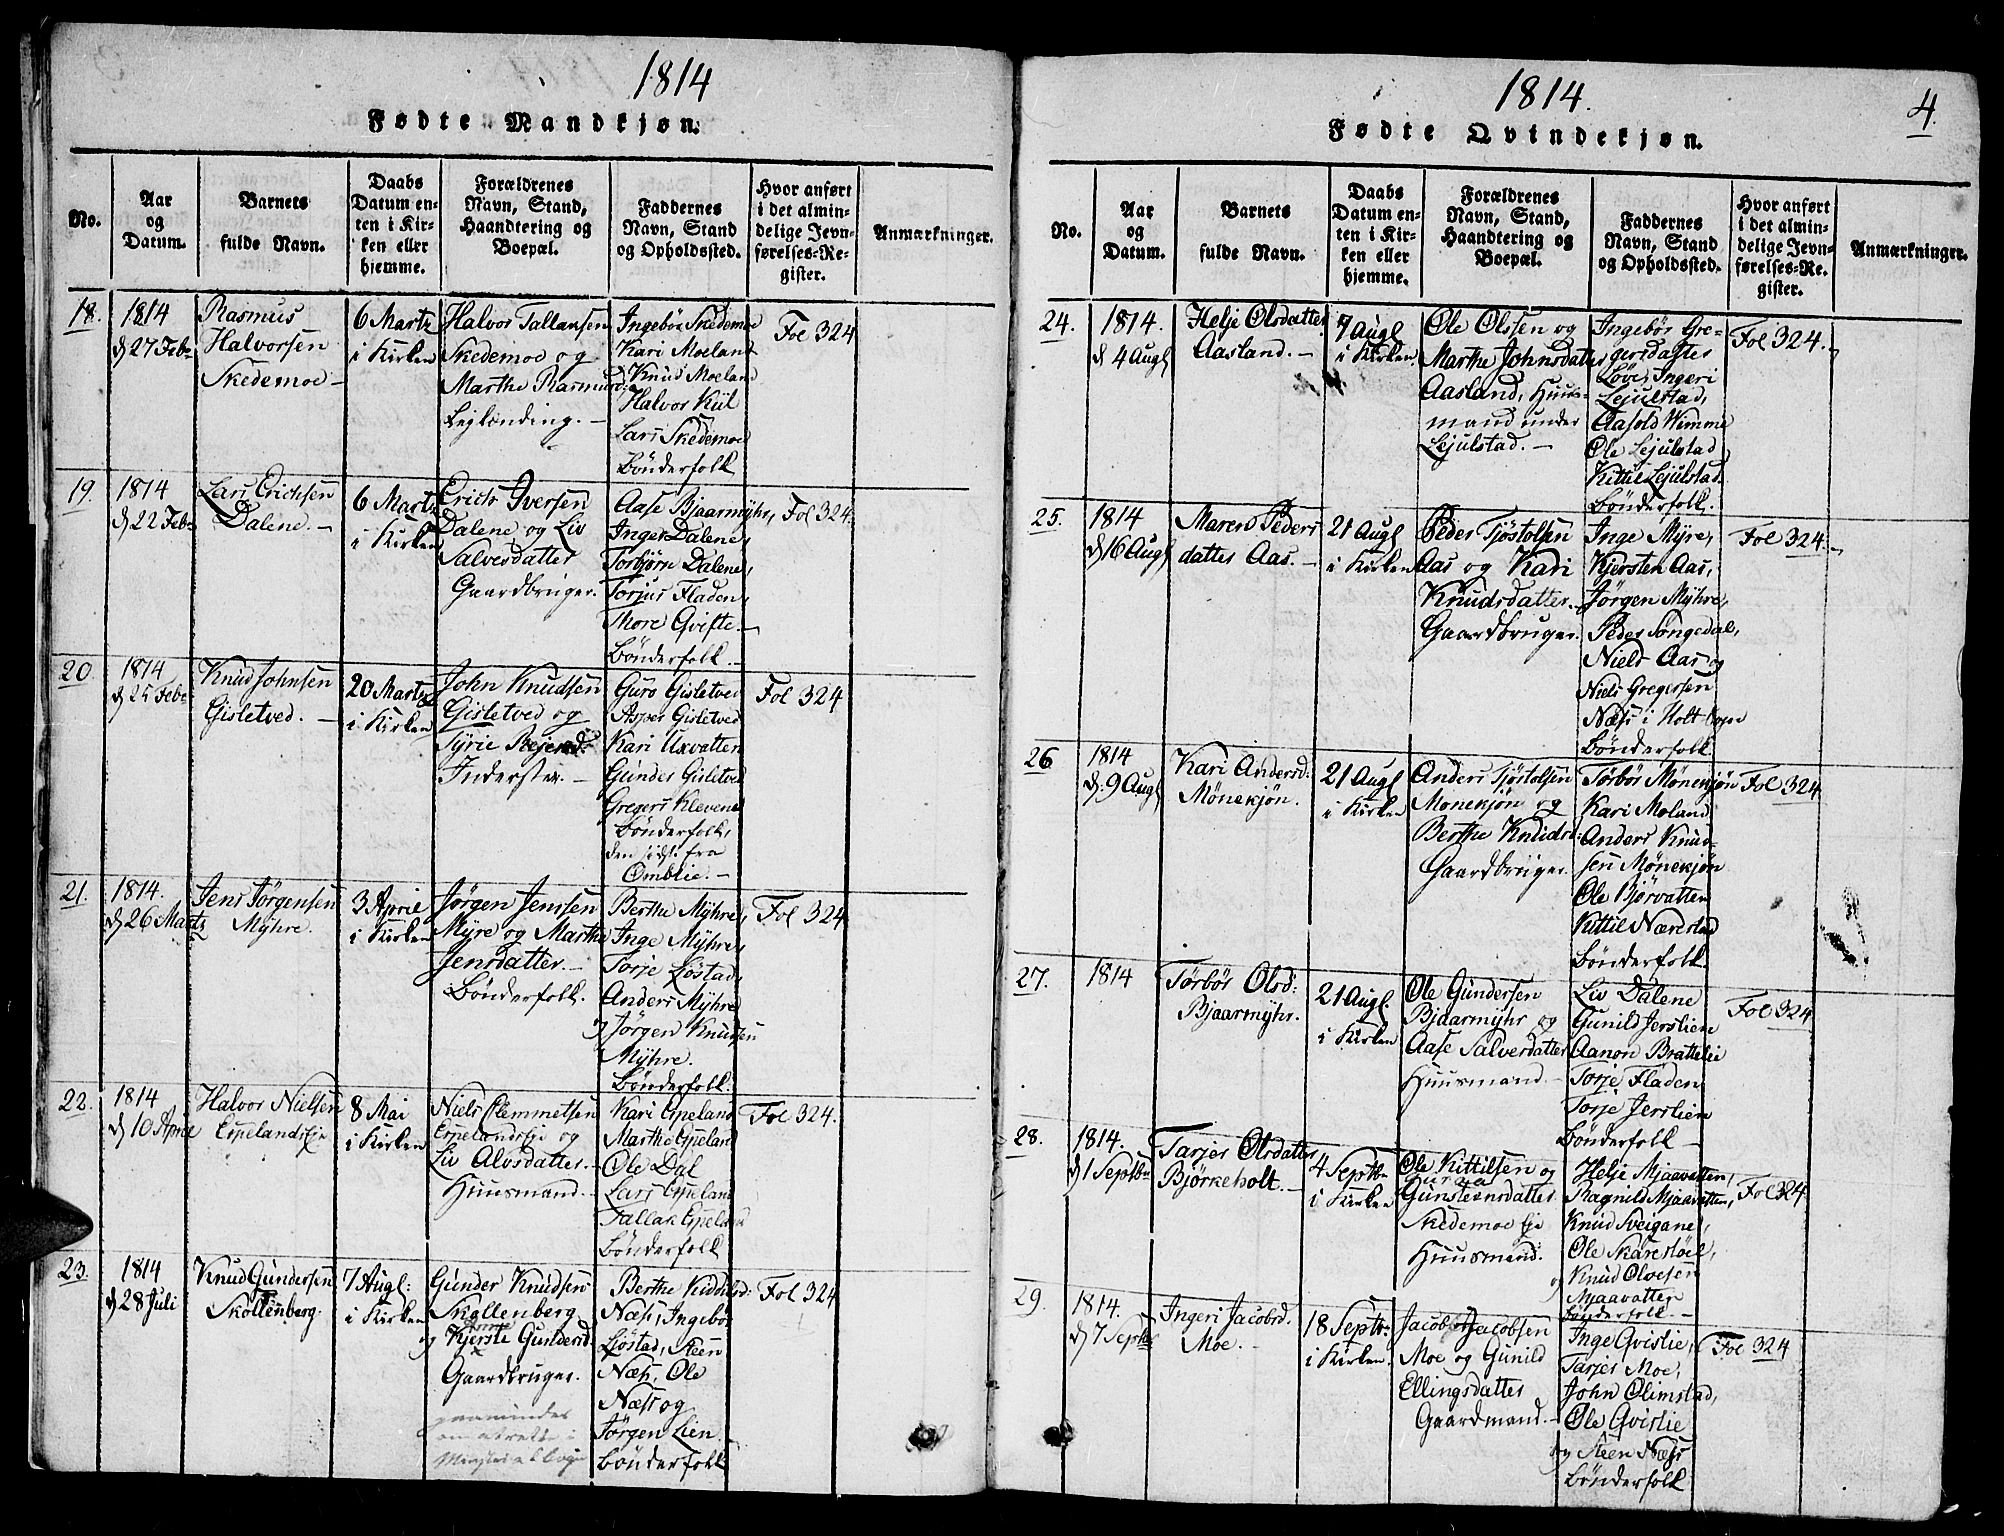 1814
Fødte Mandkjøn.
No.
Aar
og
Datum.
Barnets
fulde Navn.
Daabs
Datum en-
ten i Kir-
ken eller
hjemme.
Forældrenes
Navn, Stand,
Haandtering og
Boepæl.
Faddernes
Navn, Stand
og Opholdssted.
Hvor anført
i det almin-
delige Jevn-
førelses-Re-
gister.
Anmærkninger.
18.
1814
d 27 Febr
Rasmus
Halvorsen
Skedemoe
6 Martz
i Kirken
Halvor Tallansen
Skedemoe og
Marthe Rasmusd:
Leglænding.
Ingebor Skedemoe
Kari Moeland
Knud Moeland
Halvor Kiil
Lars Skedemoe
Bønderfolk
Fol 324
19.
1814
d 22 Febr
Lars Erichsen
Dalene.
6 Martz
i Kirken
Erich Iversen
Dalene og Liv
Salvesdatter
Gaardbruger.
Aase Bjaarmyhr,
Inger Dalene,
Torbjørn Dalene,
Torjus Fladen,
Thore Qvifte.
Bønderfolk.
Fol 324.
20
1814
d 25 Febr
Knud Johnsen
Gisletved.
20 Martz
i Kirken
John Knudsen
Gisletved og
Tyrie Rejersd:
Inderster.
Guro Gisletved
Asper Gisletved
Kari Uxvatten
Gunder Gisletved
Gregers Klevene
Bønderfolk,
den sidst fra
Omblie.
Fol 324
21.
1814.
d 26 Martz
Jens Jørgensen
Myhre.
3 April
i Kirken
Jørgen Jenssen
Myre og Marthe
Jensdatter.
Bønderfolk.
Berthe Myhre,
Inge Myhre,
Torje Løstad,
Anders Myhre
og Jørgen Knudsen
Myhre.
Bønderfolk.
Fol 324.
22.
1814
d 10 April
Halvor Nielsen
Espelands Eje
8 Mai
i Kirken
Niels Clemmetsen
Espelands Eje og
Liv Alvsdatter.
Huusmand.
Kari Espeland
Marthe Espeland
Ole Dal
Lars Espeland
Tallak Espeland
Bønderfolk
Fol 324.
23.
1814
d 28 Juli
Knud Gundersen
Skollenberg.
7 Augl:
i Kirken
Gunder Knudsen
Skallenberg
og Kjerste Gundersd:
Gaardbruger.
Berthe
Næss, Ingebor
Løstad, Steen
Næss, Ole
Næss og
Jørgen Lien
Bønderfolk
Fol 324
1814.
4.
Fødte Qvindekjøn.
No.
Aar
og
Datum.
Barnets
fulde Navn.
Daabs
Datum en-
ten i Kir-
ken eller
hjemme.
Forældrenes
Navn, Stand,
Haandtering og
Boepæl.
Faddernes
Navn, Stand
og Opholdssted.
Hvor anført
i det almin-
delige Jevn-
førelses-Re-
gister.
Anmærkninger.
24.
1814.
d 4 Augl
Helje Olsdatter
Aasland.
7 Augl
i Kirken
Ole Olsen og
Marthe Johnsdatter
Aasland, Huus-
mand under
Lejulstad.
Ingebor Gre-
gersdatter
Løver, Ingeri
Lejulstad,
Aasold Wimme
Ole Lejulstad
Kittil Lejulstad
Bønderfolk.
Fol 324.
25.
1814
d 16 Augl
Maren Peders
datter Aas.
21 Augl
i Kirken
Peder Tjøstolsen
Aas og Kari
Knudsdatter.
Gaardbruger.
Inge Myre,
Kjersten Aas,
Jørgen Myhre,
Peder Songedal,
Niels Aas og
Niels Gregersen
Næss i Holt Sogn
Bønderfolk
Fol 324.
26
1814
d. 9 Augl
Kari Andersd:
Mønekjøn.
21 Augl
i Kirken
Anders Tjøstolsen
Monekjøn og
Berthe Knudsd:
Gaardbruger.
Torbor Mønekjøn
Kari Moland
Anders Knud-
sen Mønekjøn
Ole Bjørvatten
Kittil Nærestad
Bønderfolk
Fol 324
27.
1814
Torbor Olsd:
Bjaarmyhr.
21 Augl.
i Kirken
Ole Gundersen
Bjaarmyhr og
Aase Salvesdatter
Huusmand.
Liv Dalene
Gunild Jerslien
Aanon Brattelie
Torje Fladen
Torje Jerslien
Bønderfolk
Fol 324.
28.
1814.
d 1 Septbr
Tarjer Olsdatter
Bjørkeholt.
4 Septbr
i Kirken
Ole Kittilsen og
Gunsteensdatter
Skedemoe Eje
Huusmand.
Helje Mjaavatten,
Ragnild Mjaavatten,
Knud Sveigane,
Ole Skarestøel,
og Knud Olvesen
Mjaavatter
Bønderfolk
Fol 324
29.
1814.
d 7 Septbr
Ingeri Jacobsd.
Moe.
18 Septbr
i Kirken.
Jacob Jacobsen
Moe og Gunild
Ellingsdatter
Gaardmand.
Inge Qvislie,
Tarjer Moe,
John Olimstad,
Ole Qvislie
og Steen Næss
Bønderfolk
Fol 324